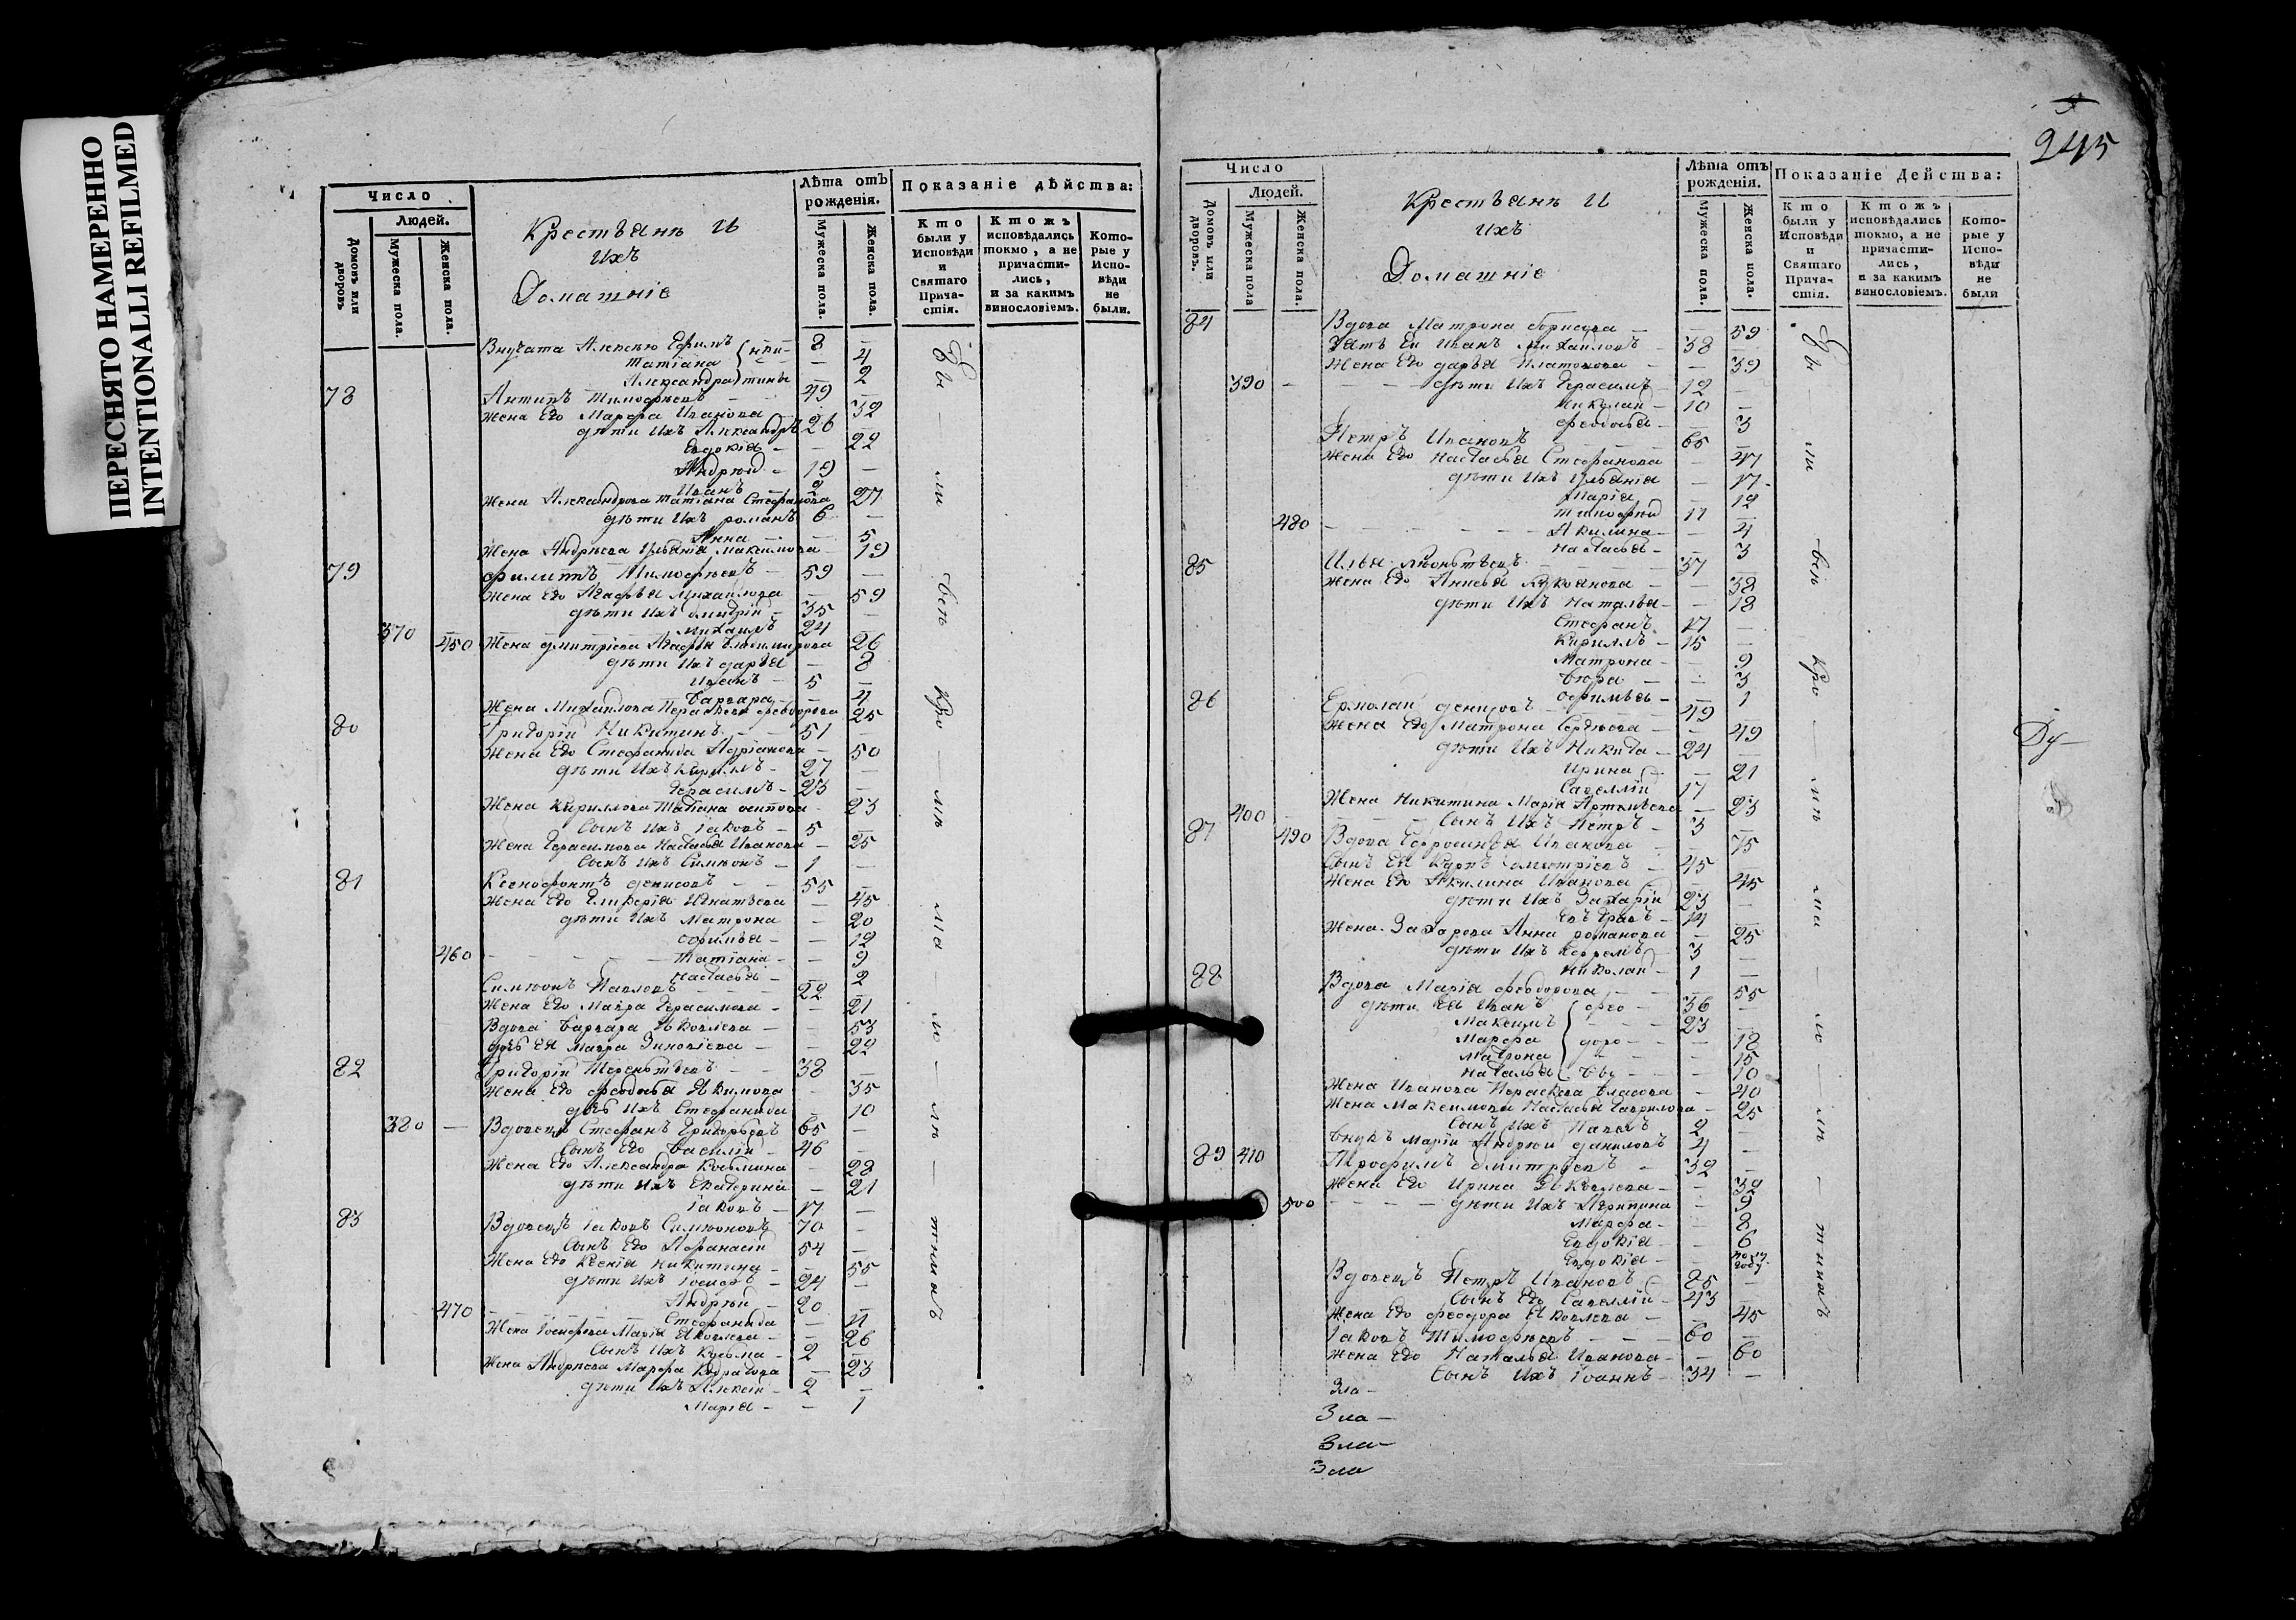 ПЕРЕСНЯТО НАМЕРЕННО
INTENTIONALLI REFILMED
Число
Людей.
Домовъ или дворовъ
Мужеска пола.
Женска пола.
Крестьяне и
ихъ
Домашніе
Лѣта отъ рожденія.
Мужеска пола.
Женска пола.
Показаніе дѣйства:
Кто были у Исповѣди и Святаго Прича-стія.
Ктожъ исповѣдались токмо, а не причасти-лись, и за какимъ винословіемъ.
Кото-рые у Испо-вѣди не были.
Внучата Алексѣю Ефимъ 8 —
Татіана — 4
Александра — 2
78 Антипъ Тимофѣевъ 49 —
Жена Его Марфа Иванова — 32
дѣти Ихъ Александръ 26
Евдокіа — 22
Андрей 19 —
Иванъ 9
Жена Александрова Татіана Стефанова 27
дѣти Ихъ романъ 6 —
Анна — 5
Жена Андреева Ульяніа Максимова 19
79 Филиппъ Тимофѣевъ 59 —
Жена Его Агафья Михаилова — 59
дѣти Ихъ Дмитрій 35
370 Михаилъ 24
450 Жена Дмитріева Агафія 26
дѣти Ихъ дарья — 8
Иванъ 5 —
Варвара — 4
Жена Михаилова Параскева Феодорова 25
80 Григорій Никитинъ 51 —
Жена Его Стефанида Адріанова — 50
дѣти Ихъ Кириллъ 27 —
Герасимъ 23 —
Жена Кириллова Татіана осипова 23
Сынъ Ихъ Іаковъ 5 —
Жена Герасимова Настасья Иванова 25
Сынъ Ихъ Симеонъ 1 —
81 Ксенофонтъ денисовъ 55 —
Жена Его Гликеріа Игнатьева — 45
дѣти Ихъ Матрона — 20
Офимья — 12
460 Татіана — 9
Настасья — 2
Симеонъ Павловъ 22 —
Жена Его Мавра Герасимова — 21
Вдова Варвара Яковлева — 53
дочь Ея Мавра Зиновіева — 22
82 Григорій Терентьевъ 38 —
Жена Его Феодосья Якимова — 35
дочь Ихъ Стефанида — 10
380 Вдовецъ Стефанъ Григорьевъ 65 —
Сынъ Его Василій 46 —
Жена Его Александра Косьмина — 28
дѣти Ихъ Екатерина — 21
Іаковъ 17 —
83 Вдовецъ Іаковъ Симеоновъ 70 —
Сынъ Его Афанасій 54 —
Жена Его Ксеніа Никитина — 55
дѣти Ихъ Іосифъ 24 —
Андрей 20 —
470 Стефанида — 11
Жена Іосифова Марія Яковлева — 26
Сынъ Ихъ Кузьма 2 —
Жена Андреева Марфа Кодратова — 23
дѣти Ихъ Алексій 2 —
Марія — 1
Бы — ли — вси Кро — мѣ ма — ло — лѣ — тныхъ
245
Число
Людей.
Домовъ или дворовъ.
Мужеска пола
Женска пола.
Крестьяне и
ихъ
Домашніе
Лѣта отъ рожденія.
Мужеска пола.
Женска пола.
Показаніе Действа:
Кто были у Исповѣди и Святаго Прича-стія.
Ктожъ исповѣдались токмо, а не причасти-лись, и за какимъ винословіемъ.
Кото-рые у Испо-вѣди не были
84 Вдова Матрона борисова — 59
Зять Ея Иванъ Михаиловъ 38 —
Жена Его дарья Платонова — 39
390 дѣти Ихъ Герасимъ 12 —
Николай 10 —
Феодосья — 3
Петръ Ивановъ 65 —
Жена Его Настасья Стефанова — 47
дѣти Ихъ Ульяніа — 17
Марія 12
Тимофей 11 —
480 Акилина — 4
Настасья — 3
85 Илья Леонтьевъ 37 —
Жена Его Анисья Лукіанова — 38
дѣти Ихъ Наталья — 18
Стефанъ 17 —
Кириллъ 15 —
Матрона — 9
— 3
Офимья — 1
86 Ермолай денисовъ 49 —
Жена Его Матрона Сергѣева — 49
дѣти Ихъ Никита 24
Ирина — 21
Савеллій 17
Жена Никитина Марія Артемьева — 23
400 Сынъ Ихъ Петръ 3 —
87 490 Вдова Ефросинья Иванова — 75
Сынъ Ея Карпъ Дмитріевъ 45
Жена Его Акилина Иванова — 45
дѣти Ихъ Захарій 23 —
14 —
Жена Захарова Анна романова — 25
дѣти Ихъ Ефремъ 3 —
Николай 1 —
88 Вдова Марія Феодорова — 55
дѣти Ея Иванъ 36 —
Максимъ 23 —
Марфа — 18
Матрона — 15
Наталья — 10
Жена Иванова Параскева Власова — 40
Жена Максимова Настасья Гаврилова — 25
Сынъ Ихъ Павелъ 2 —
Внукъ Маріи Андрей даниловъ 4 —
89 410 Трофимъ Дмитріевъ 32 —
Жена Его Ирина Яковлева — 32
500 дѣти Ихъ Агрипина — 9
Марфа — 8
Евдокіа — 6
Евдокіа — полу году
Вдовецъ Петръ Ивановъ 85 —
Сынъ Его Савеллій 43 —
Жена Его Феодора Яковлева — 45
Іаковъ Тимофѣевъ 60 —
Жена Его Наталья Иванова — 60
Сынъ Ихъ Іоаннъ 34 —
Бы — ли — вси Кро — мѣ ма — ло — лѣ — тныхъ
Ду—
Зла —
Зла —
Зла —
Зла